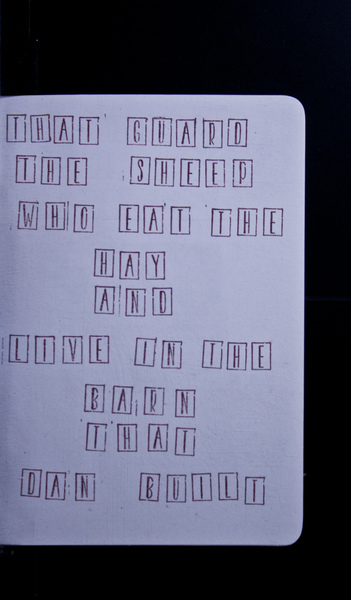 THAT GUARD
THE SHEEP
WHO EAT THE
HAY
AND
LIVE IN THE
BARN
THAT
DAN BUILT